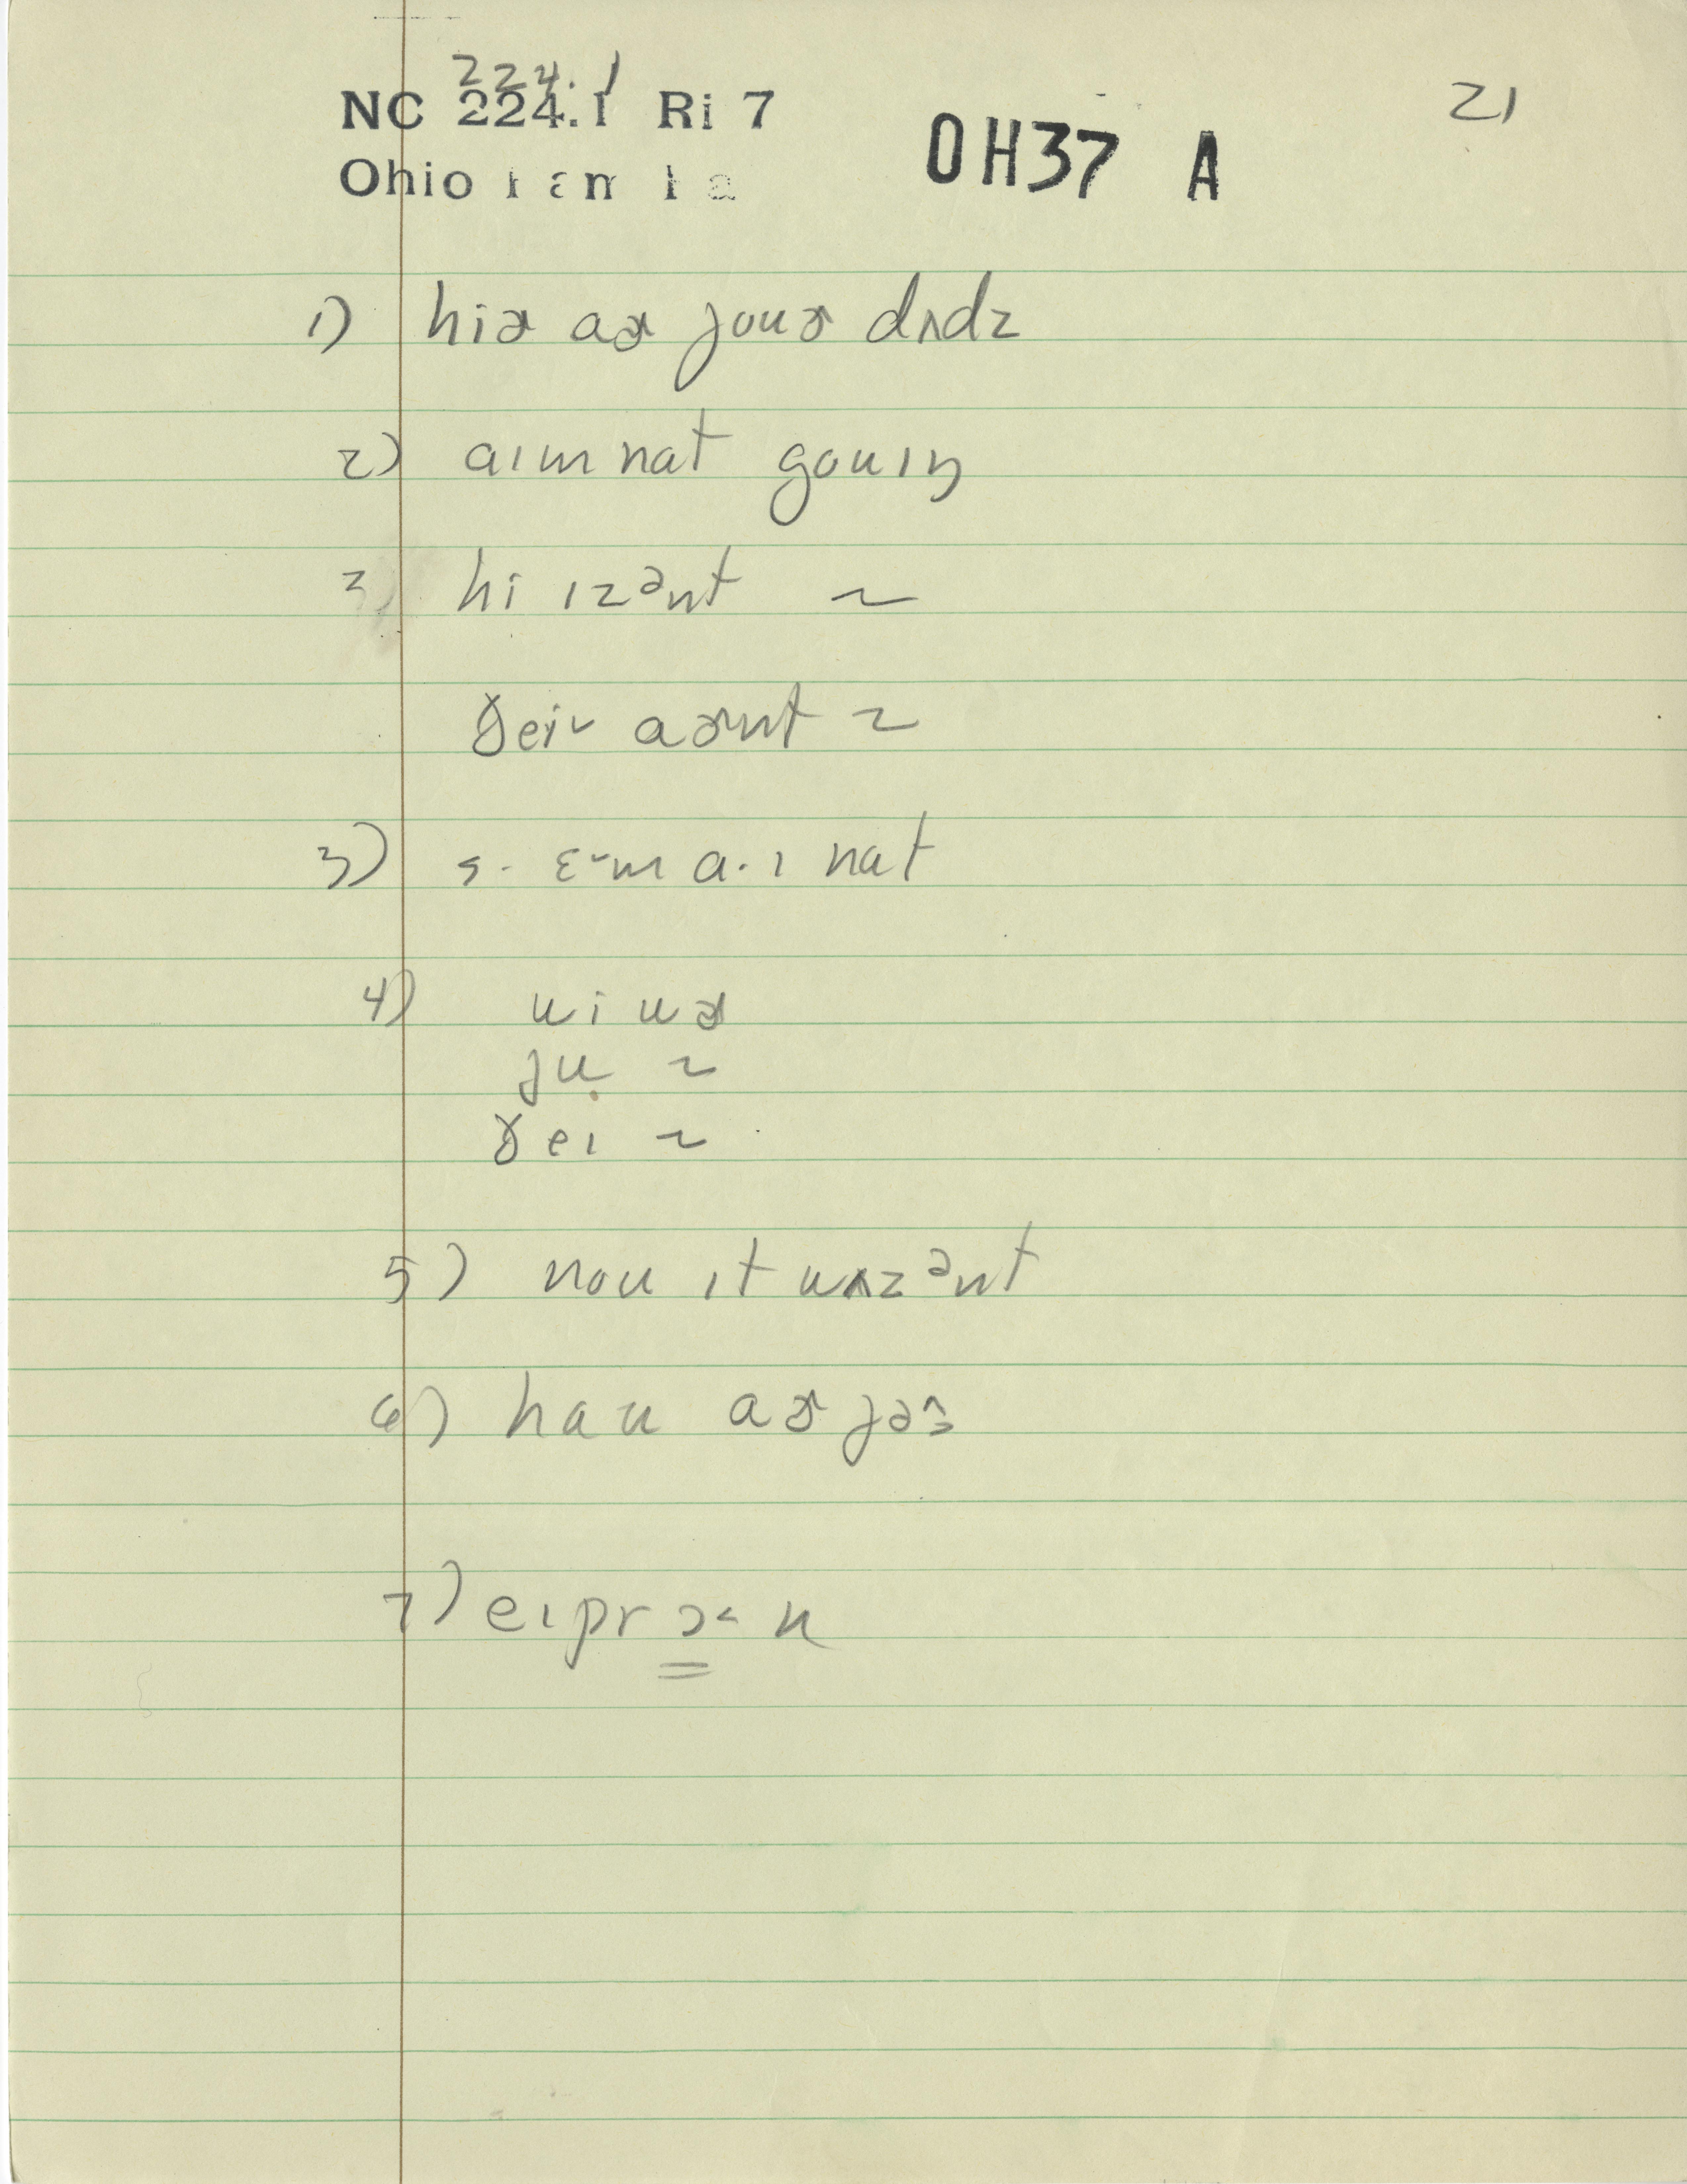 224.1
NC 224.1 Ri 7
21
Ohio
OH37 A
1) hiɚ aɚ jouɚ dʌdz
2) aɪm nat gouɪŋ
3) hi ɪzənt ~
ðeiv aɚnt ~
3) s. ɛ˞m a.ɪ nat
4) ui uɚ
ju ~
ðeɪ ~
5) nou ɪt uʌzənt
6) hau aɚ jə
7) eɪpr ə˞ n